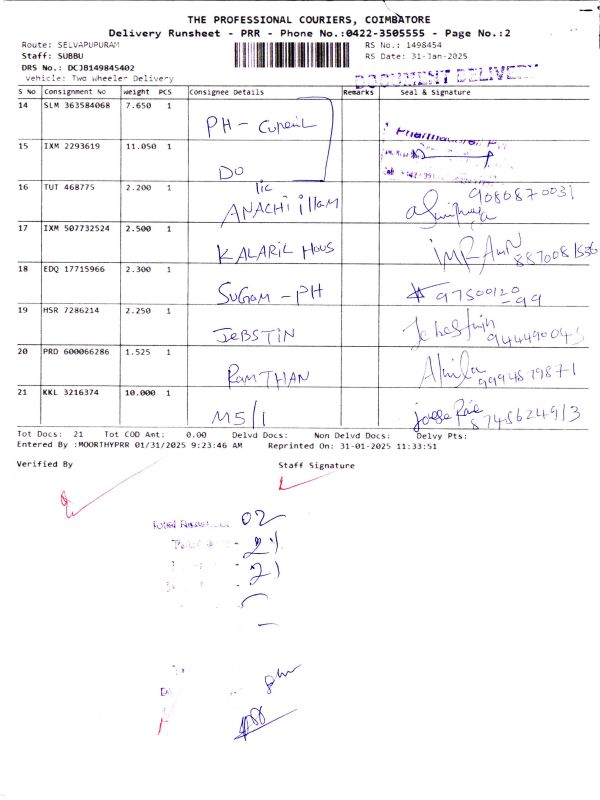 THE PROFESSIONAL COURIERS, COIMBATORE
Delivery Runsheet - PRR - Phone No.:0422-3505555 - Page No.:2
Route: SELVAPUPURAM RS No.: 1498454
Staff: SUBBU RS Date: 31-Jan-2025
DRS No.: DCJB149845402
vehicle: Two Wheeler Delivery DOCUMENT DELIVERY
S No Consignment No Weight PCS Consignee Details Remarks Seal & Signature
14 SLM 363584068 7.650 1
PH -
15 IXM 2293619 11.050 1
DO
16 TUT 468775 2.200 1 lic 9080870031
ANACHI illam
17 IXM 507732524 2.500 1
KALARIL HOUS IMRAN 8870081556
18 EDQ 17715966 2.300 1
SUGAM - PH 97500120
-99
19 HSR 7286214 2.250 1
JEBSTIN 944490043
20 PRD 600066286 1.525 1
RAMTHAN Akila 9994879871
21 KKL 3216374 10.000 1
M5/1 8745624913
Tot Docs: 21 Tot COD Amt: 0.00 Delvd Docs: Non Delvd Docs: Delvy Pts:
Entered By :MOORTHYPRR 01/31/2025 9:23:46 AM Reprinted On: 31-01-2025 11:33:51
Verified By Staff Signature
02
21
21